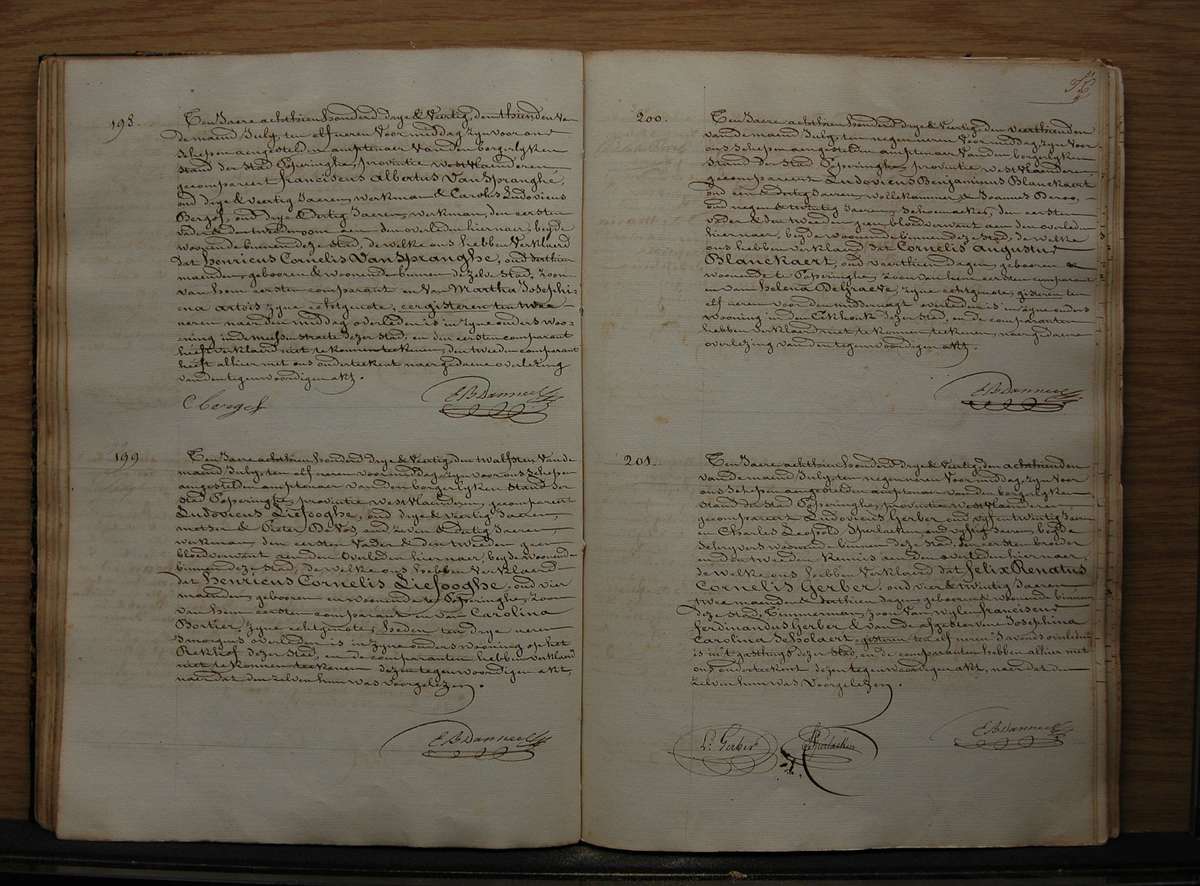 198.
Ten Jaere achthien honderd drye & Veertig, den thienden van
de maend July, ten elf uren Voor middag zyn voor ons
Schepen aengestelden amptenaer Van den borgerlyken
stand der stad Poperinghe, provintie WestVlaenderen,
gecompareert franciscus Albertus Van Spranghe,
oud drye & veertig Jaeren, werkman, & Carolus Ludovicus
Berges, oud drye & dertig Jaeren, werkman, den eersten
vader & den tweeden oom aen den overleden hiernaer, beyde
woonende binnen deze stad, de welke ons hebben Verklaerd
dat henricus Cornelis Van Spranghe, oud derthien
maenden, geboren & woonende binnen dezelve stad, zoon
van hem eersten comparant en Van Martha Josephi-
na artois zyne echtgenote, eergisteren ten twee
ueren naer den middag overleden is in zyne ouders woo-
ning in de meessen straete dezer stad; en den eersten comparant
heeft verklaerd niet te konnen teekenen, den tweeden comparant
heeft alhier met ons onderteekent naer gedaene overlezing
van den tegenwoordigen akt.
C berges
E B Danneel
199
Ten Jaere achthien honderd drye & Veertig, den twalfsten Van de
maend July, ten elf uren voor middag zyn voor ons Schepen
aengestelden amptenaer van den borgerlyken stand der
stad Poperinghe, provintie WestVlaenderen, gecompareert
Ludovicus Liefooghe, oud drye & veertig Jaeren,
metser & Pieter De Vos oud zeven & dertig Jaeren,
werkman, den eersten Vader & den tweeden geen
bloedverwant aen den Overleden hiernaer, beyde woonende
binnen deze stad, de welke ons hebben Verklaerd
dat henricus Cornelis Liefooghe, oud vier
maenden, geboren en woonende te Poperinghe, zoon
van hem eersten comparant en van Carolina
Bortier, zyne echtgenote, heden ten drye uren
smorgens overleden is in zyne ouders wooning op het
Rekhof dezer stad, en de comparanten hebben verklaerd
niet te konnen teekenen dezen tegenwoordigen akt,
naer dat den zelven hun was voorgelezen.
E B Danneel
200.
Ten Jaere achthien honderd drye & Veertig, den veerthienden
van de maend July, ten negen uren Voor middag, zyn Voor
ons Schepen aengestelden amptenaer Van den borgerlyken
stand der stad Poperinghe, provintie WestVlaenderen,
gecompareert Ludovicus Benjaminus Blanckaert
oud een & dertig Jaeren, wollekammer & Joannes Beroo,
oud negen & twintig Jaeren, Schoenmaeker, den eersten
vader & den tweeden geen bloedverwant aen den overleden
hiernaer, beyde woonende binnen deze stad, de welke
ons hebben verklaerd dat Cornelis Augustus
Blanckaert, oud veerthien dagen, geboren &
woonende te Poperinghe, zoon van hem eersten comparant
en van helena Delgraeve, zyne echtgenote, gisteren ten
elf ueren voor den middernagt overleden is in zyne ouders
wooning in den Ekhoek dezer stad, en de comparanten
hebben verklaerd niet te konnen teekenen, naer gedaene
overlezing van den tegenwoordigen akt.
E B Danneel
201.
Ten Jaere achthien honderd drye & Veertig, den achthienden
van de maend July, ten negen uren Voor middag, zyn Voor
ons Schepen aengestelden amptenaer Van den borgerlyken
stand der stad Poperinghe, provintie WestVlaenderen
gecompareert Ludovicus Gerber oud vyf en twintig Jaeren
en Charles Leopold, oud Jaeren, beyde
schryvers woonende binnen deze stad, den eersten broeder
en den tweeden kennis aen den overleden hiernaer,
de welke ons hebben Verklaerd dat felix Renatus
Cornelis Gerber, oud vier & twintig Jaeren
twee maenden & derthien dagen, geboren & woonende binnen
deze stad, Timmerman, zoon Van wylen franciscus
ferdinandus Gerber & van de afgestorven Josephina
Carolina Scholaert, gisteren ten elf ueren s'avonds overleden
is in 't gasthuys dezer stad, en de comparanten hebben alhier met
ons onderteekent dezen tegenwoordigen akt, naer dat den
zelven hun was Voorgelezen.
L: Gerber
E B Danneel